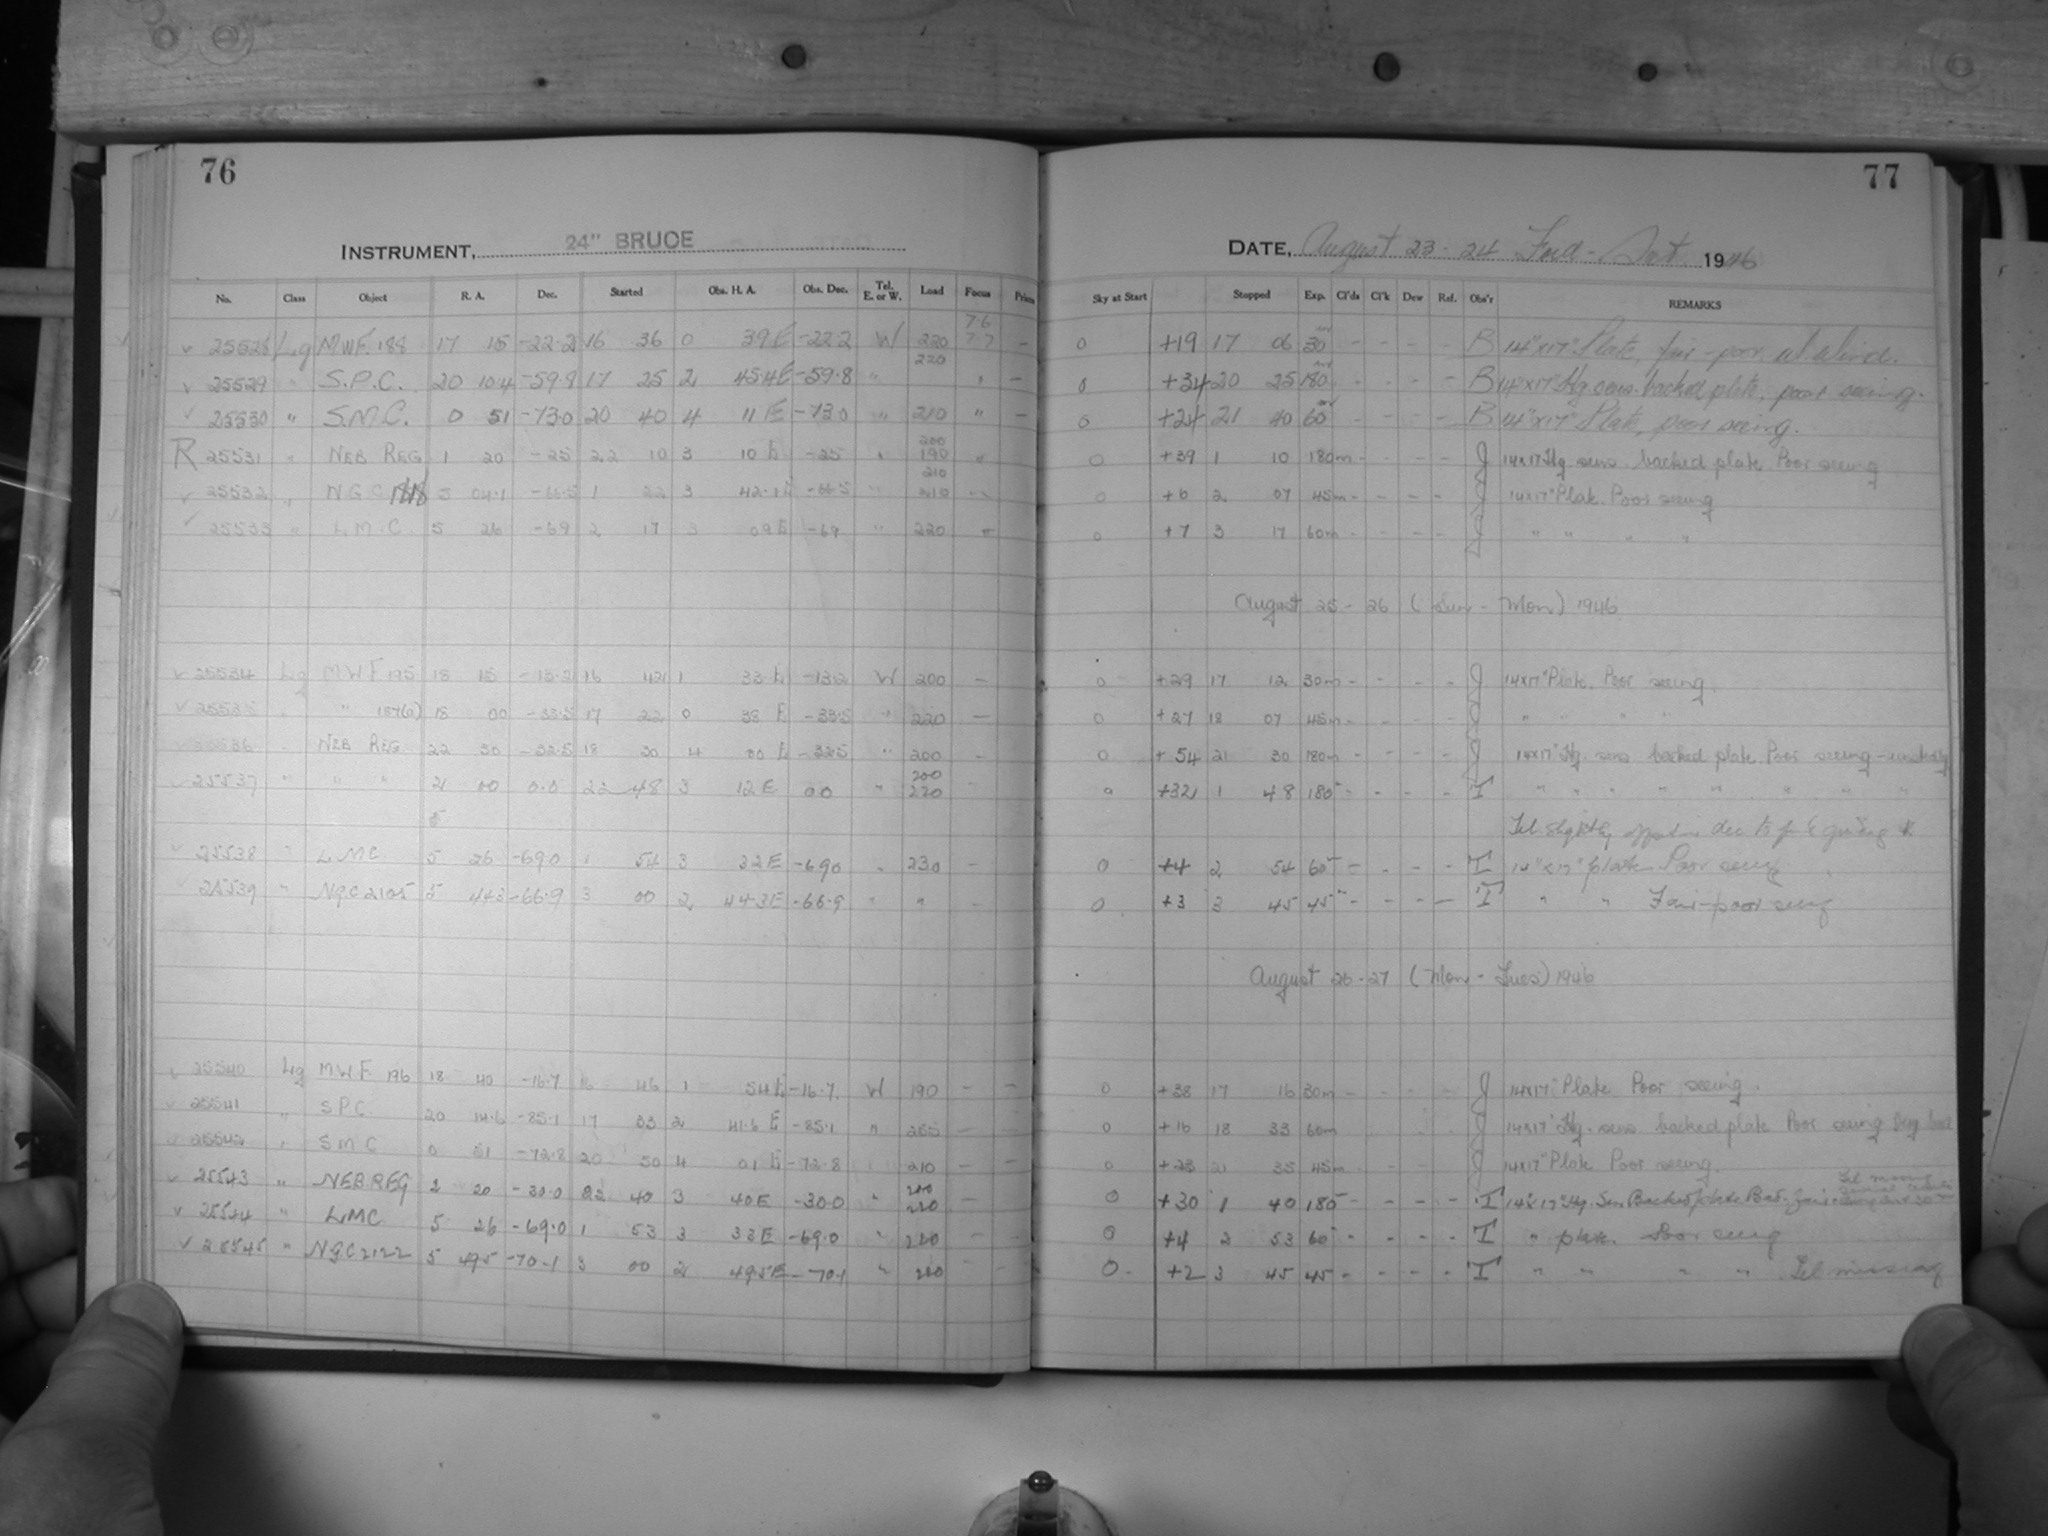 76
INSTRUMENT, 24" BRUCE
No. Class Object R. A. Dec. Started Obs. H. A. Obs. Dec. Tel. E. or W. Load Focus
7.6
25528 Lg MWF 188 17 15 -22.2 16 36 0 39 E -22.2 W 220 7.7 -
220
25529 " S.P.C. 20 10.4 -59.8 17 25 2 45.4 E -59.8 " " -
25530 " S.M.C. 0 51 -73.0 20 40 4 11 E -73.0 " 210 " -
200
R 25531 " NEB REG 1 20 -25 22 10 3 10 E -25 " 190 "
210
25532 " N G C 1818 5 04.1 -66.5 1 22 3 42.1 E -66.5 " 210 "
25533 " L.M.C 5 26 -69 2 17 3 09 E -69 " 220 "
25534 Lg MWF 195 18 15 -13.2 16 42 1 33 E -13.2 W 200 -
25535 " " 187(6) 18 00 -33.5 17 22 0 38 E -33.5 " 220 -
25536 " NEB REG. 22 30 -32.5 18 30 4 00 E -32.5 " 200 -
200
25537 " " " 2 00 0.0 22 48 3 12 E 00 " 220 -
5
25538 " L.M.C. 5 26 -69.0 1 54 3 32 E -69.0 " 230 -
25539 " NGC 2105 5 44.3 -66.9 3 00 2 44.3 E -66.9 " " -
25540 Lg MWF 196 18 40 -16.7 16 46 1 54 E -16.7 W 190 - -
25541 " S P C. 20 14.6 -85.1 17 33 2 41.6 E -85.1 " 255 - -
25542 " S M C 0 51 -72.8 20 50 4 01 E -72.8 210 - -
200
25543 " NEB REG 2 20 -30.0 22 40 3 40 E -30.0 " 220 -
25544 " LMC 5 26 -69.0 1 53 3 33 E -69.0 " 220 - -
25545 " NGC 2122 5 49.5 -70.1 3 00 2 49.5 E -70.1 " 220 - -
77
DATE, August 23-24 Frid - Sat 1946
Sky at Start Stopped Exp. Cl'ds Cl'k Dew Ref. Obs'r REMARKS
0 +19 17 06 30 - - - - B 14"x17" Plate, fair-poor
0 +34 20 25 180 - - - - B 14"x17" Hg. sens. backed plate, poor seeing.
0 +24 21 40 60 - - - - B 14"x17" Plate, poor seeing.
0 +39 1 10 180m - - - - J 14x17" Hg. sens. backed plate. Poor seeing
0 +6 2 07 45m - - - - J 14x17" Plate. Poor seeing
0 +7 3 17 60m - - - - J " " " "
August 25 - 26 (Sun - Mon) 1946
0 +29 17 12 30m - - - - J 14x17" Plate. Poor seeing.
0 +27 18 07 45m - - - - J " " " "
0 +54 21 30 180m - - - - J 14x17" Hg. sens backed plate. Poor seeing - unsteady
0 +32 1 48 180 - - - - T " " " " " " " "
Tel slightly
0 +4 2 54 60 - - - - T 14"x17" plate Poor seeing
0 +3 3 45 45 - - - - T " " Fair-poor seeing
August 26-27 (Mon - Tues) 1946
0 +38 17 16 30m - - - - J 14x17" Plate Poor seeing.
0 +16 18 33 60m J 14x17" Hg. sens backed plate Poor seeing
0 +23 21 35 45m - - - - J 14x17" Plate Poor seeing.
0 +30 1 40 180 - - - - T 14"x17" Hg. Sen Backed plate
0 +4 2 53 60 - - - - T " plate Poor seeing
0 +2 3 45 45 - - - - T " " " " Tel missing